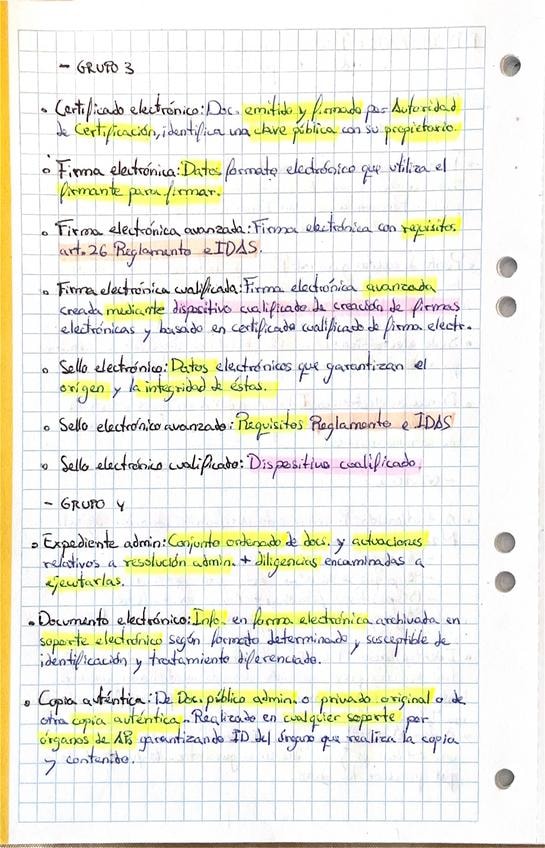 - GRUPO 3
• Certificado electrónico: Doc. emitido y firmado por Autoridad
de Certificación, identifica una clave pública con su propietario.
• Firma electrónica: Datos formato electrónico que utiliza el
firmante para firmar.
• Firma electrónica avanzada: Firma electrónica con requisitos
art. 26 Reglamento eIDAS.
• Firma electrónica cualificada: Firma electrónica avanzada
creada mediante dispositivo cualificado de creación de firmas
electrónicas y basado en certificado cualificado de firma electr.
• Sello electrónico: Datos electrónicos que garantizan el
origen y la integridad de éstas.
• Sello electrónico avanzado: Requisitos Reglamento eIDAS
• Sello electrónico cualificado: Dispositivo cualificado.
- GRUPO 4
• Expediente admin: Conjunto ordenado de docs. y actuaciones
relativos a resolución admin. + diligencias encaminadas a
ejecutarlas.
• Documento electrónico: Info. en forma electrónica archivada en
soporte electrónico según formato determinado y susceptible de
identificación y tratamiento diferenciado.
• Copia auténtica: De Doc. público admin. o privado original o de
otra copia auténtica. Realizado en cualquier soporte por
órganos de AP, garantizando ID del órgano que realiza la copia
y contenido.